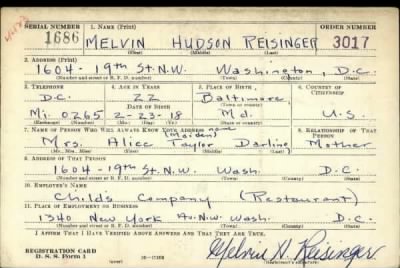 SERIAL NUMBER 1. NAME (Print) ORDER NUMBER
1686 MELVIN HUDSON REISINGER 3017
(First) (Middle) (Last)
2. ADDRESS (Print)
1604-19th St. N.W. Washington, D.C.
(Number and street or R. F. D. number) (Town) (County) (State)
3. TELEPHONE 4. AGE IN YEARS 5. PLACE OF BIRTH 6. COUNTRY OF CITIZENSHIP
D.C. 22 Baltimore
DATE OF BIRTH (Town or county)
Mi. 0265 2-23-18 Md. U.S.
(Exchange) (Number) (Mo.) (Day) (Yr.) (State or country)
7. NAME OF PERSON WHO WILL ALWAYS KNOW YOUR ADDRESS 8. RELATIONSHIP OF THAT PERSON
(Maiden) name
Mrs. Alice Taylor Darline Mother
(Mr., Mrs., Miss) (First) (Middle) (Last)
9. ADDRESS OF THAT PERSON
1604-19th St. N.W. Wash. D.C.
(Number and street or R. F. D. number) (Town) (County) (State)
10. EMPLOYER'S NAME
Childs Company (Restaurant)
11. PLACE OF EMPLOYMENT OR BUSINESS
1340 New York Av. N.W. Wash. D.C.
(Number and street or R. F. D. number) (Town) (County) (State)
I AFFIRM THAT I HAVE VERIFIED ABOVE ANSWERS AND THAT THEY ARE TRUE.
REGISTRATION CARD
D. S. S. Form 1 Melvin H. Reisinger